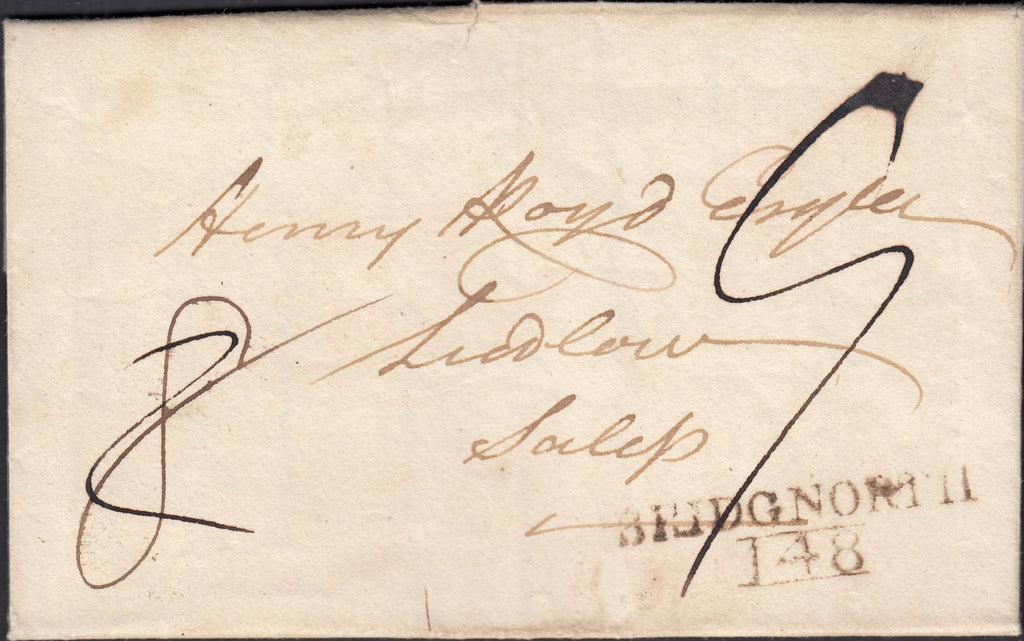 Henry Lloyd Esqre
Ludlow
Salop
8
BRIDGNORTH
148